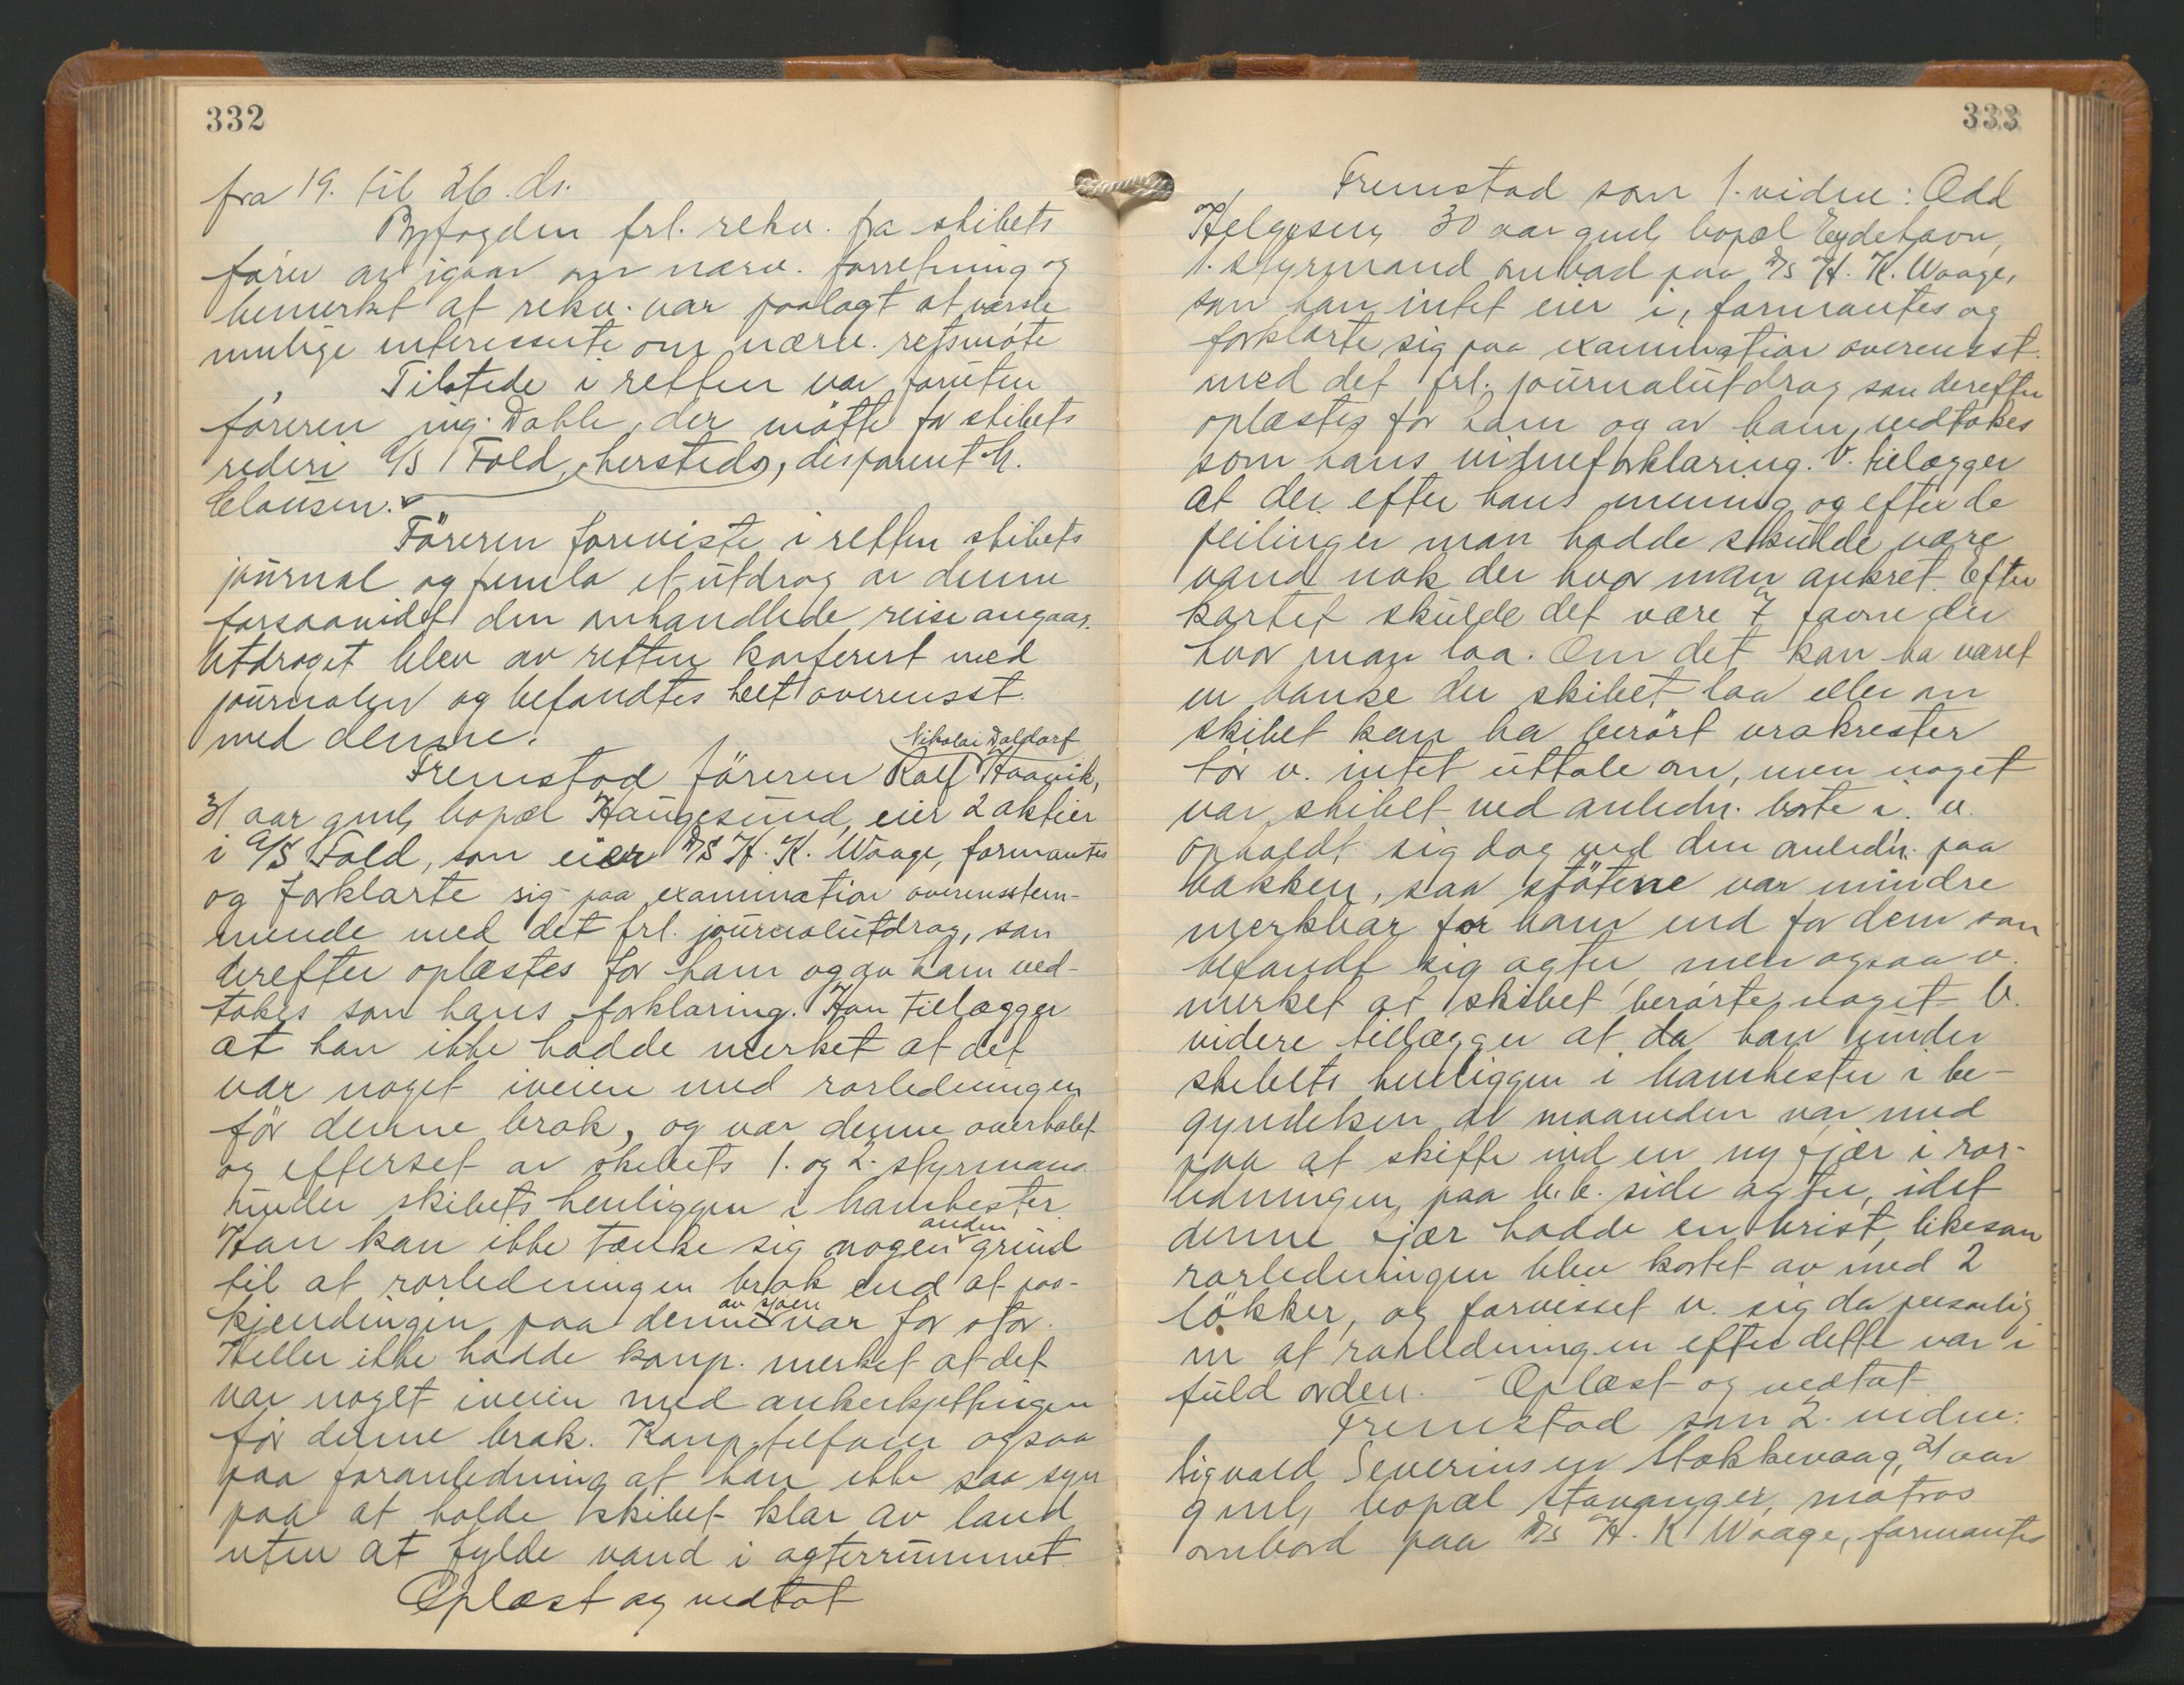 332
fra 19. til 26. ds.
Byfogden frl. rekv. fra skibets
fører av igaar om nærv. forretning og
bemerket at rekv. var paalagt at varsle
mulige interesserte om nærv. retsmøte
Tilstede i retten var foruten
føreren ing. Dahle, der møtte for skibets
rederi A/S Fold, hersteds, disponent H.
Clausen.
Føreren foreviste i retten skibets
journal og fremla et utdrag av denne
forsaavidt den omhandlede reise angaar.
Utdraget blev av retten konferert med
journalen og befandtes helt overensst.
med denne.
Nikolai Daldorf
Fremstod føreren Rolf Haavik,
31 aar gml, bopæl Haugesund, eier 2 aktier
i A/S Fold, som eier D/S H. K. Waage, formantes
og forklarte sig paa examination overensstem-
mende med det frl. journalutdrag, som
derefter oplæstes for ham og av ham ved-
tokes som hans forklaring. Han tillægger
at han ikke hadde merket at det
var noget iveien med rorledningen
før denne brak, og var denne overhalet
og efterset av skibets 1. og 2. styrmand
under skibets henliggen i Manchester.
anden
Han kan ikke tænke sig nogen grund
til at rorledningen brak end at paa-
av sjøen
kjendingen paa denne var for stor.
Heller ikke hadde komp. merket at det
var noget iveien med ankerkjettingen
før denne brak. Komp. tilføier ogsaa
paa foranledning at han ikke saa syn
paa at holde skibet klar av land
uten at fylde vand i agterrummet.
Oplæst og vedtat
333
Fremstod som 1. vidne: Odd
Helgesen, 30 aar gml, bopæl Eydehavn,
1. styrmand ombord paa D/S H. K. Waage,
som han intet eier i, formantes og
forklarte sig paa examination overensst.
med det frl. journalutdrag som derefter
oplæstes for ham og av ham vedtokes
som hans vidneforklaring. V. tillægger
at der efter hans mening og efter de
peilinger man hadde skulde være
vand nok der hvor man ankret. Efter
kartet skulde det være 7 favne der
hvor man laa. Om det kan ha været
en banke der skibet laa eller om
skibet kan ha berørt vrakrester
tør v. intet uttale om, men noget
var skibet ved anledn. borte i. V.
opholdt sig dog ved den anledn. paa
bakken, saa støtene var mindre
merkbar for ham end for dem som
befandt sig agter, men ogsaa v.
merket at skibet berørte noget. V.
videre tillægger at da han under
skibets henliggen i Manchester i be-
gyndelsen av maaneden var med
paa at skifte ind en ny fjær i ror-
ledningen paa b.b. side agter, idet
denne fjær hadde en brist, likesom
rorledningen blev kortet av med 2
løkker, og forvisset v. sig da personlig
om at rorledningen efter dette var i
fuld orden. - Oplæst og vedtat.
Fremstod som 2. vidne:
Sigvald Severinsen Stokkevaag, 21 aar
gml, bopæl Stavanger, matros
ombord paa D/S H. K. Waage, formantes